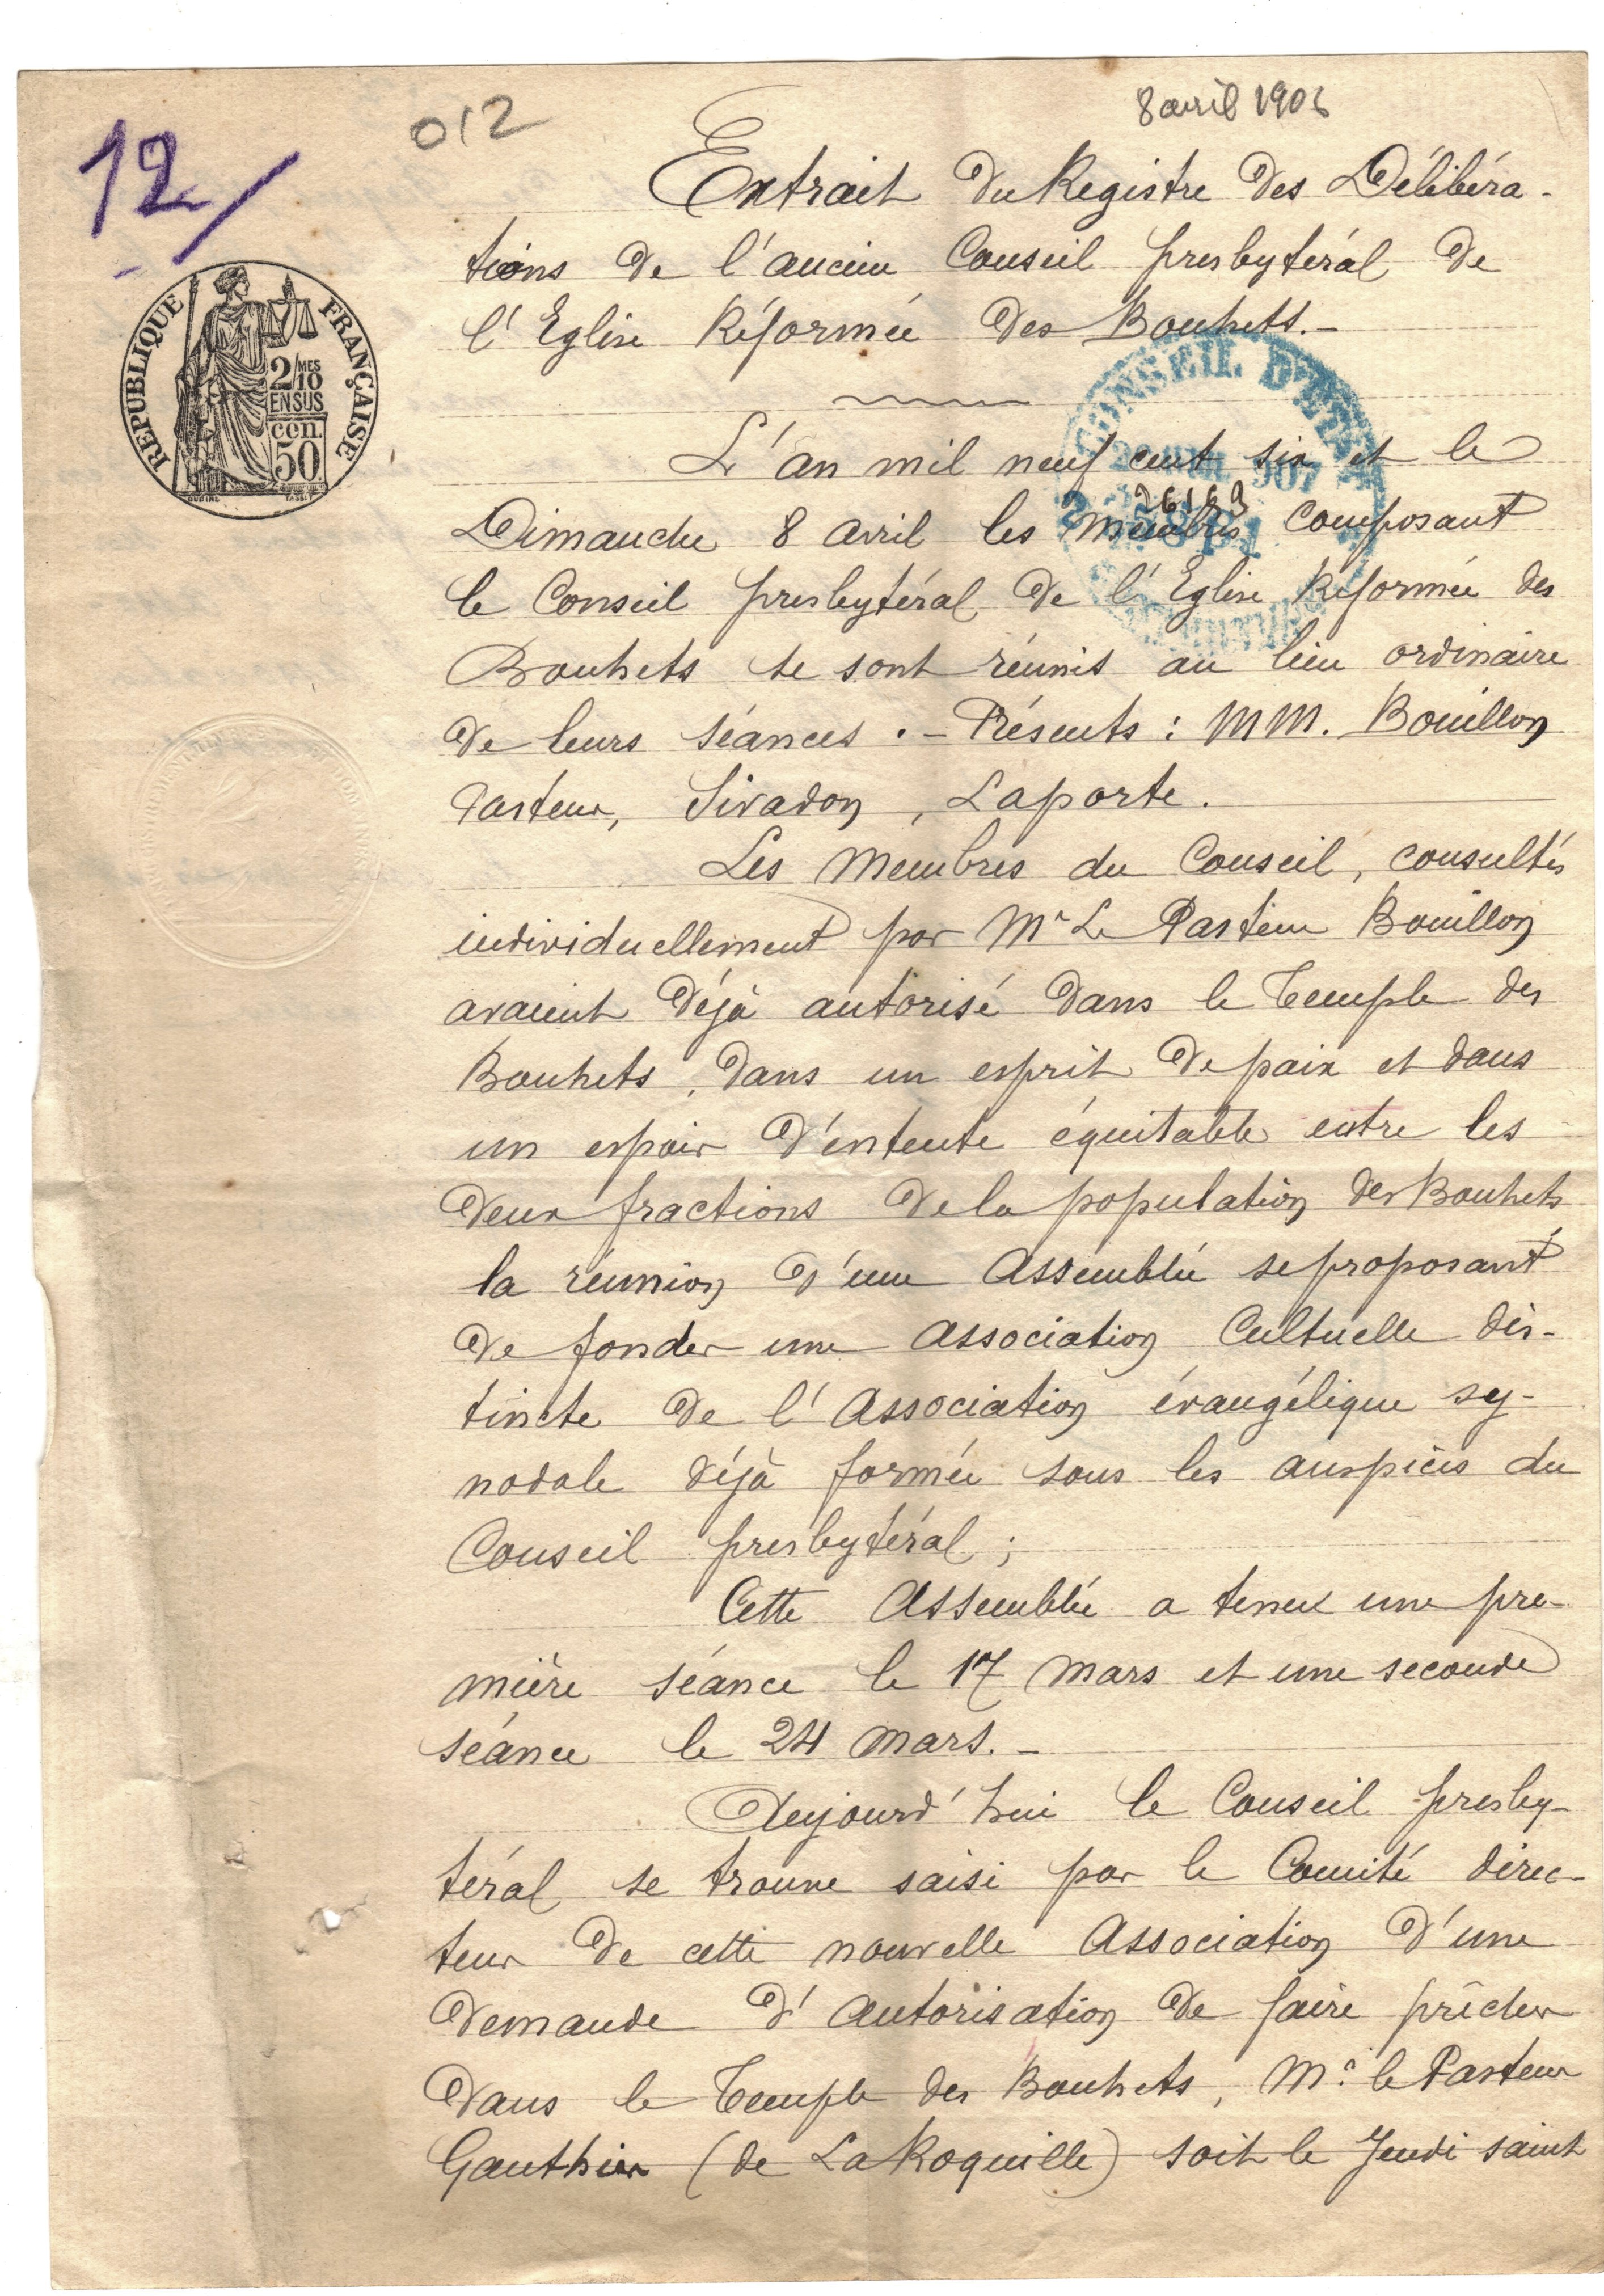 8 avril 1906
012
12/
Extrait du Registre des Délibéra-
tions de l'ancien Conseil presbytéral de
l'Eglise Réformée des Bouhets.-
RÉPUBLIQUE FRANÇAISE
2/10 MES
EN SUS
cen.
50
CONSEIL D'ETAT
907
26163
L'an mil neuf cent six et le
Dimanche 8 avril les membres composant
le Conseil presbytéral de l'Eglise Réformée des
Bouhets se sont réunis au lieu ordinaire
de leurs séances .- Présents : MM. Bouillon
Pasteur, Sivadon, Laporte.
Les Membres du Conseil, consultés
individuellement par Mr Le Pasteur Bouillon
avaient déjà autorisé dans le Temple des
Bouhets, dans un esprit de paix et dans
un espoir d'entente équitable entre les
deux fractions de la population des Bouhets
la réunion d'une Assemblée se proposant
de fonder une Association Cultuelle dis-
tincte de l'Association évangélique sy-
nodale déjà formée sous les auspices du
Conseil presbytéral ;
Cette Assemblée a tenu une pre-
mière séance le 17 mars et une seconde
séance le 24 mars.-
Aujourd'hui le Conseil presby-
téral se trouve saisi par le Comité direc-
teur de cette nouvelle Association d'une
demande d'autorisation de faire prêcher
dans le Temple des Bouhets, Mr le Pasteur
Gauthier (de La Roquille) soit le Jeudi saint